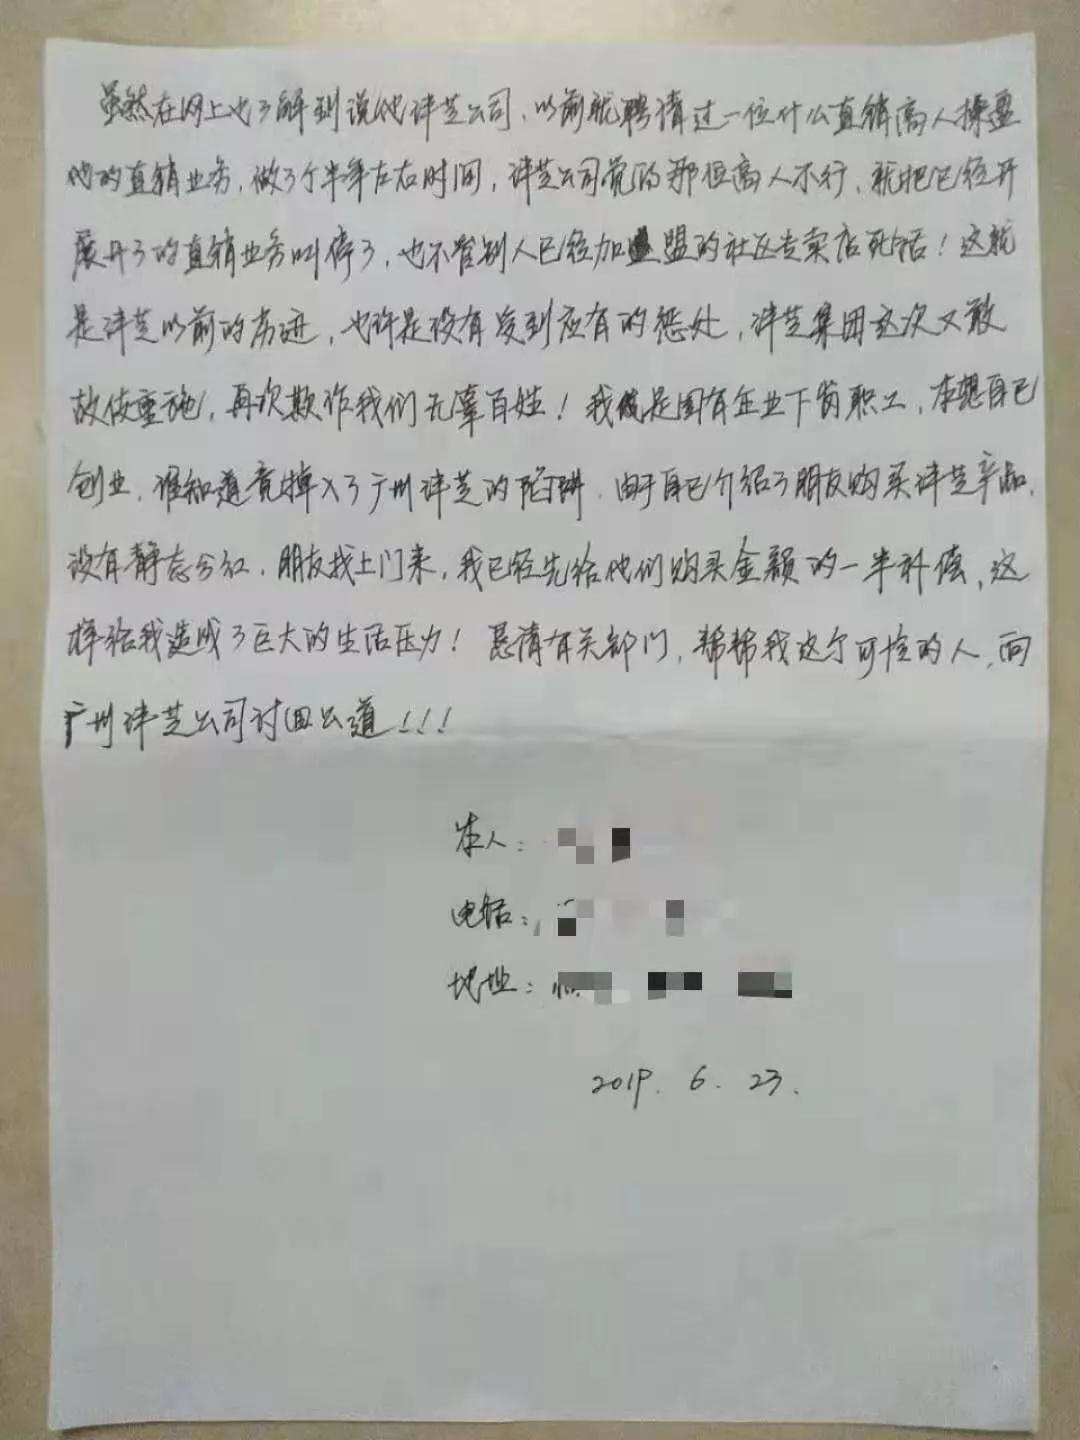 虽然在网上也了解到说他评芝公司，以前就聘请过一位什么直销高人操盘
他的直销业务，做了个半年左右时间，评芝公司觉的那位高人不行，就把已经开
展开了的直销业务叫停了，也不管别人已经加盟的社区专卖店死活！这就
是评芝以前的劣迹，也许是没有受到应有的惩处，评芝集团这次又敢
故伎重施，再次欺诈我们无辜百姓！我是国有企业下岗职工，本想自己
创业，谁知道竟掉入了广州评芝的陷阱，由于自己介绍了朋友购买评芝产品，
没有静态分红，朋友找上门来，我已经先给他们购买金额的一半补偿，这
样给我造成了巨大的生活压力！恳请有关部门，帮帮我这个可怜的人，向
广州评芝公司讨回公道！！！
本人：
电话：
地址：
2019. 6. 23.